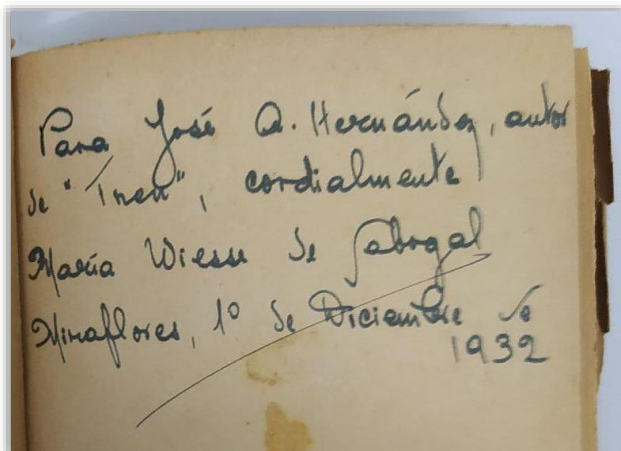 Para José A. Hernández, autor
de "Tren", cordialmente
María Wiesse de Sabogal
Miraflores, 1º de Diciembre de
1932